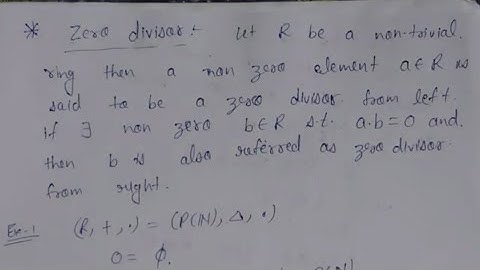 * Zero divisor :- Let R be a non-trivial
ring then a non zero element a∈R is
said to be a zero divisor from left
if ∃ non zero b∈R s.t. a.b=0 and
then b is also referred as zero divisor
from right.
Ex-1 (R, +, .) = (P(N), Δ, .)
0 = ϕ.